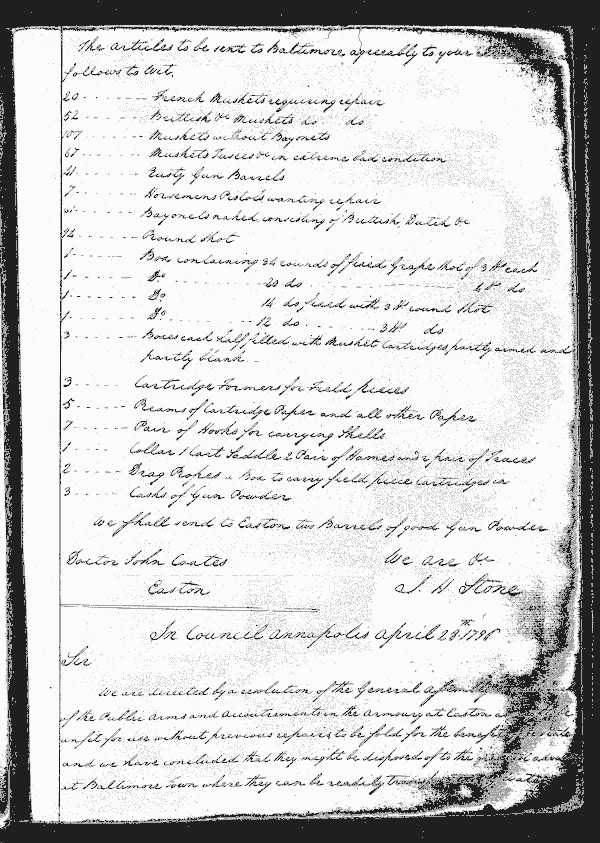 The articles to be sent to Baltimore agreeably to your
follows to Wit.
20 French Muskets requiring repair
52 Brittish &c Muskets do do
107 Muskets without Bayonets
67 Muskets Fusees &c in extreme bad condition
21 Rusty Gun Barrels
7 Horsemens Pistols wanting repair
Bayonets naked, consisting of Brittish, Dutch &c
94 Round Shot
1 Box containing 34 rounds of fixed Grape Shot of 3 lb each
1 Do 20 do 4 lb do
1 Do 14 do fixed with 3 lb round Shot
1 Do 12 do 3 lb do
3 Boxes each half filled with Musket Cartridges partly armed and
partly blank
3 Cartridge Formers for Field pieces
5 Reams of Cartridge Paper and all other Paper
7 Pair of Hooks for carrying Shells
1 Collar 1 Cart Saddle 2 Pair of Hames and 2 pair of Traces
2 Drag Ropes a Box to carry field piece Cartridges in
3 Casks of Gun Powder
We shall send to Easton two Barrels of good Gun Powder
Doctor John Coates We are &c
Easton J. H. Stone
In Council Annapolis April 28th 1796
Sir
We are directed by a resolution of the General Assembly
of the Public Arms and Accoutrements in the Armoury at Easton
unfit for use without previous repairs to be sold for the benefit
and we have concluded that they might be disposed of to the
at Baltimore Town where they can be readily